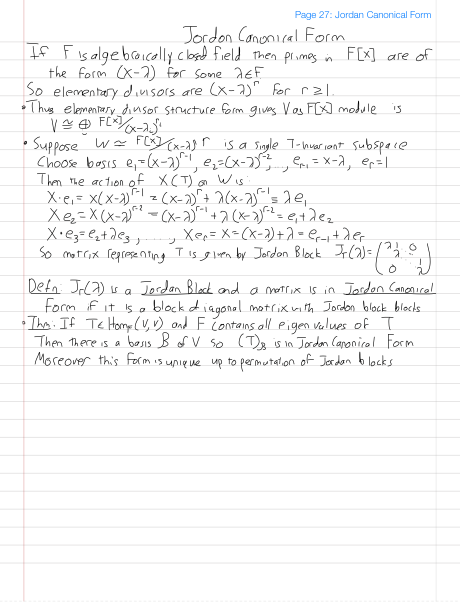 Page 27: Jordan Canonical Form
Jordan Canonical Form
If F is algebraically closed field then primes in F[x] are of
the form (x-λ) for some λ∈F
So elementary divisors are (x-λ)^r for r≥1.
• Thus elementary divisor structure form gives V as F[x] module is
V ≅ ⊕ F[x]/(x-λ_i)^{r_i}
• Suppose W ≃ F[x]/(x-λ)^r is a single T-invariant subspace
Choose basis e_1=(x-λ)^{r-1}, e_2=(x-λ)^{r-2}, ..., e_{r-1}=x-λ, e_r=1
Then the action of X(T) on W is:
X·e_1 = X(x-λ)^{r-1} = (x-λ)^r + λ(x-λ)^{r-1} = λe_1
Xe_2 = X(x-λ)^{r-2} = (x-λ)^{r-1} + λ(x-λ)^{r-2} = e_1+λe_2
X·e_3=e_2+λe_3, ..., Xe_r = X=(x-λ)+λ = e_{r-1}+λe_r
So matrix representing T is given by Jordan Block J_r(λ)=(λ 1 0 λ ⋱ 1 0 λ)
Defn: J_r(λ) is a Jordan Block and a matrix is in Jordan Canonical
Form if it is a block diagonal matrix with Jordan block blocks
• Thm: If T∈Hom_F(V,V) and F contains all eigenvalues of T
Then there is a basis B of V so (T)_B is in Jordan Canonical Form
Moreover this form is unique up to permutation of Jordan blocks